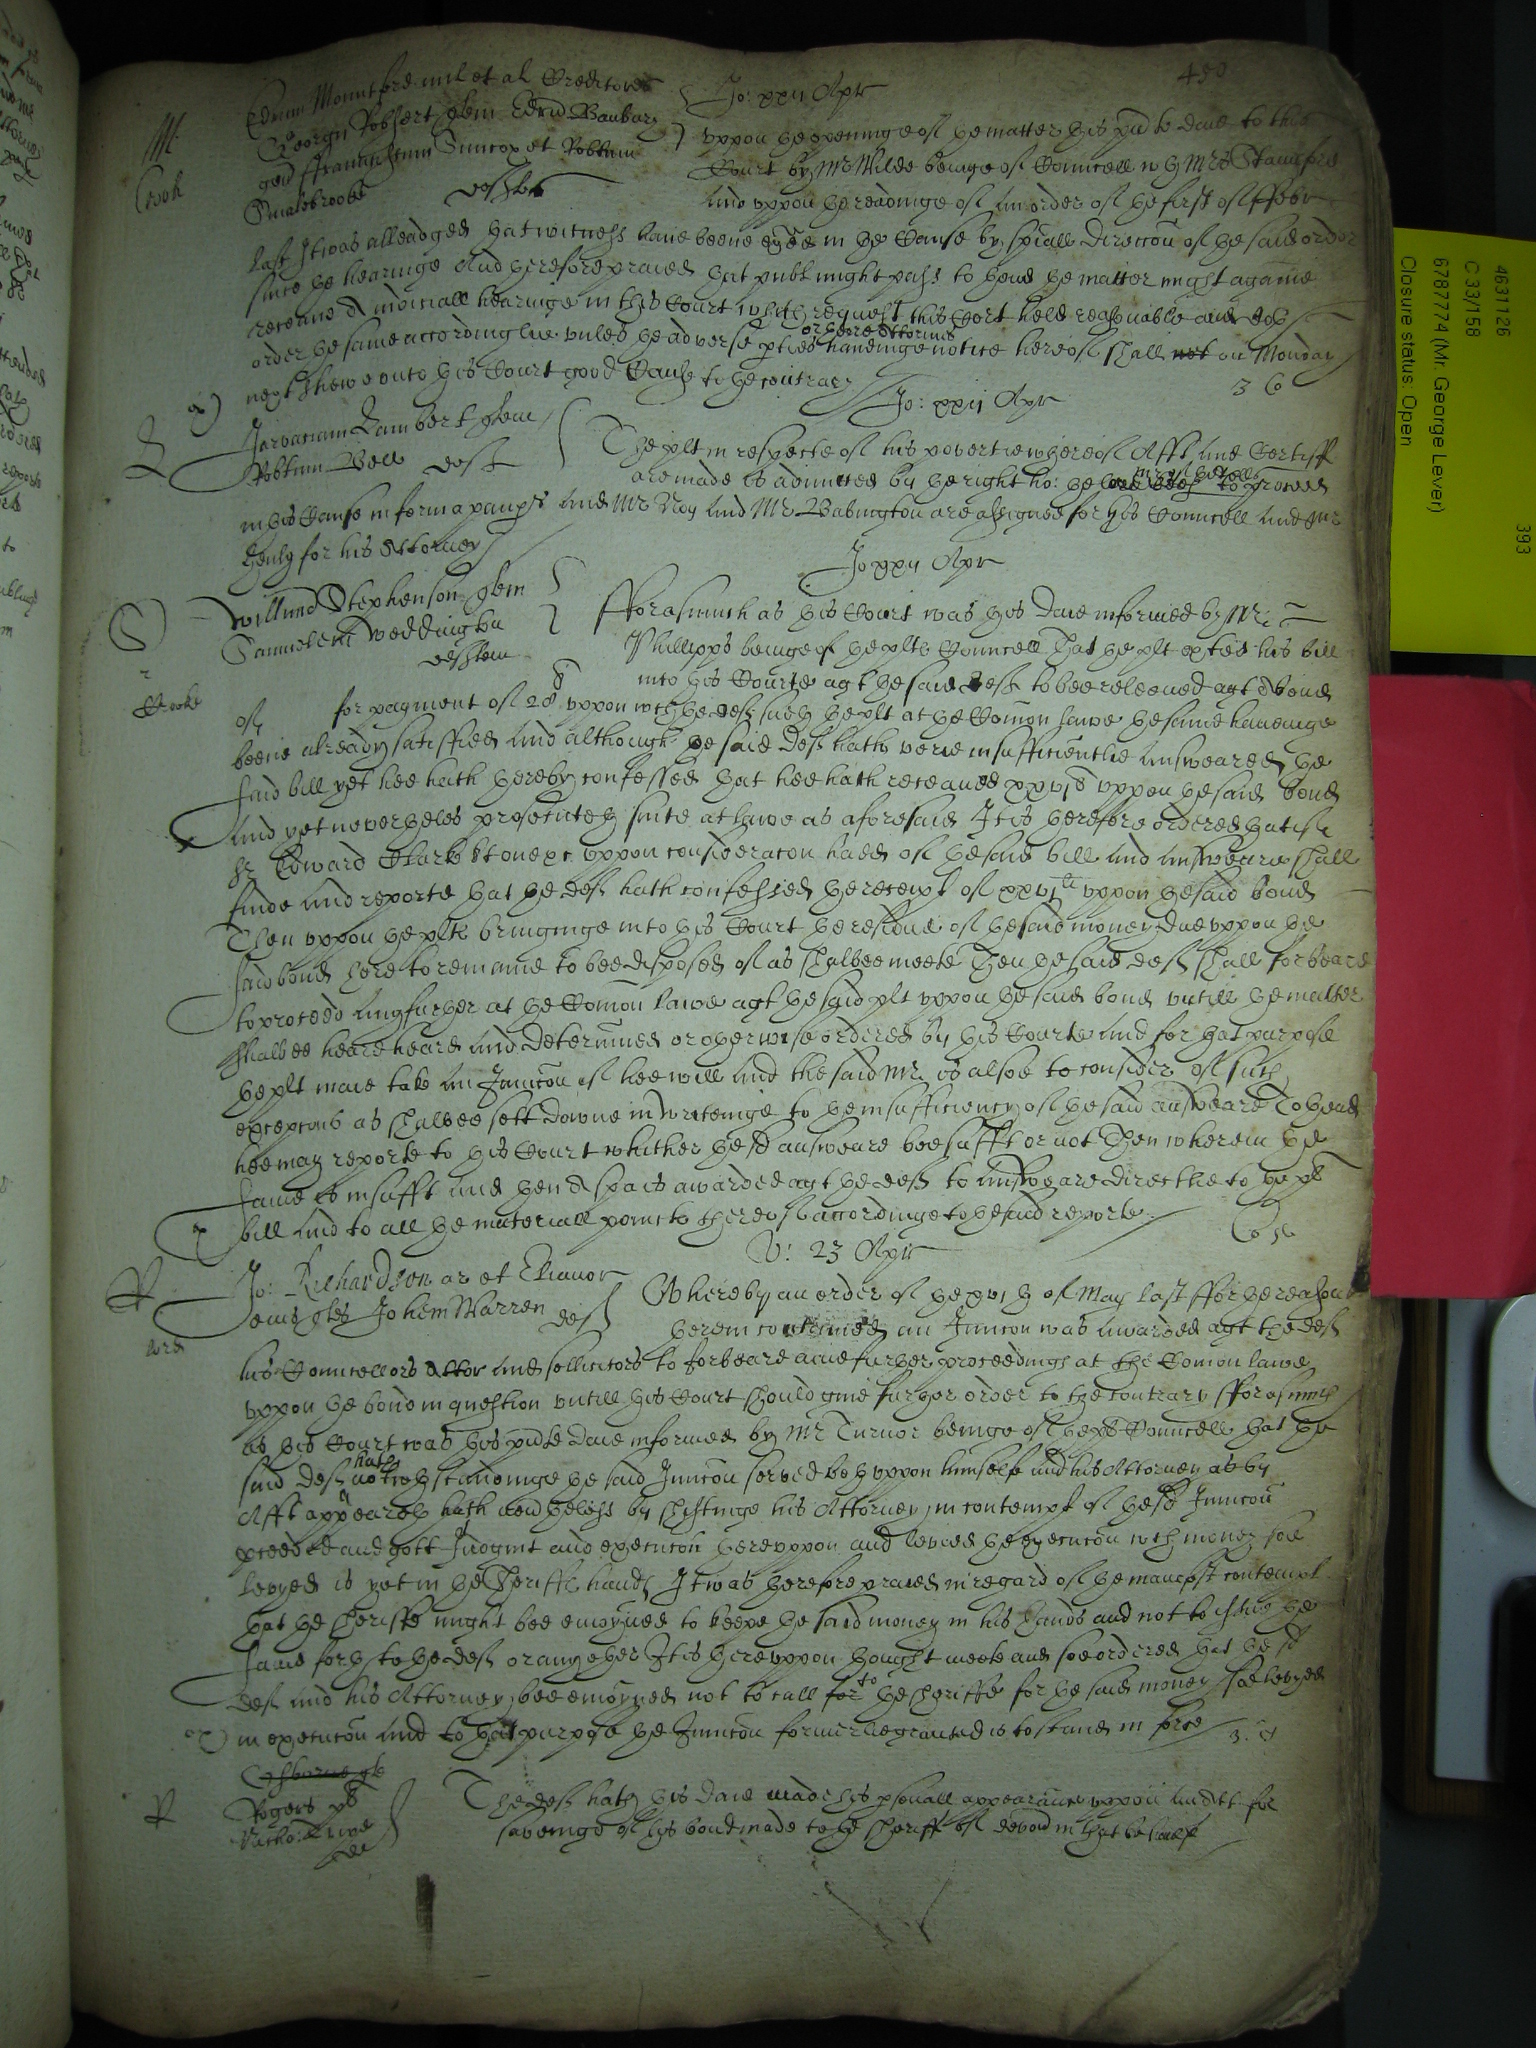 450
M:
Crook
Edrum Mountford mil et al Creditores
Georgii Robsert quer Edrud Banbury
gen ffranciscum Simcox et Robtum
Smalebrooke deftes
Jo: xxij Apr
Uppon the openinge of the matter this pnte daie to this
Court by Mr Wilde beinge of Councell wth Mrs Stamford
and uppon the readinge of an order of the first of ffebr
last It was alleadged that witness have beene exed in the Cause by spiall direccon of the said order
since the hearinge And therefore praied that publ might passe to thend the matter might againe
receave a iudiciall hearinge in this Court which request this Cort held reasonable and doth
order the same accordinglie unles the adverse pties or there Attornies havinge notice hereof shall on Monday
next shewe unto this Court good Cause to the contrary
3 6
Jo: xxij Apr
Lambert quer
Robtum Bell deft
The plt in respecte of his povertie whereof Afft and Certiff
are made is admitted by the right ho: the to proceed
in this Cause in forma paupis and Mr Noy and Mr Babington are assigned for his Councell and Mr
Henly for his Attorney
Jo xxij Apr
S
Crooke
Willmus Stephenson quer
Samuelem Weddington
deften
fforasmuch as this Court was this daie informed by Mr
Phillipps beinge of the plts Councell That the plt exted his bill
into this Courte agt the said deft to bee releeved agt a bond
of for payment of 28 uppon wch the deft sueth the plt at the Comon Lawe the same havinge
beene already satisfied And although the said deft hath verie insufficientlie answeared the
said bill yet hee hath thereby confessed that hee hath receaved xxvi uppon the said bond
and yet neverthelesse prosecuteth suite at lawe as aforesaid It is therefore ordered that if
Sr Edward Clarke uppon consideracon hadd of the said bill and answeare shall
finde and reporte that the deft hath confessed the receipt of xxvi uppon the said bond
Then uppon the plts bringinge into this Court the residue of the said money due uppon the
said bond here to remaine to bee disposed of as shalbee meete Then the said deft shall forbeare
to proceed any further at the Comon lawe agt the said plt uppon the said bond untill the matter
shalbee heare heard and determined or otherwise ordered by this Courte and for that purpose
the plt maie take an Iniuncon if hee will and the said Mr is alsoe to consider of such
excepcons as shalbee sett downe in writeinge to the insufficiency of the said answeare To thend
hee may reporte to this Court whither the sd answeare bee sufft or not Then wherein the
same is insufft and then a spa is awarded agt the deft to answeare directlie to the plts
bill and to all the materiall pointe thereof accordinge to the said reporte
V: 23 Apr
R
Jo: Richardson ar et Elianor
quer Johem Warren deft
Whereby an order of the xvith of May last ffor the reasons
therein conteined an Iniuncon was awarded agt the deft
his Councellors Attor and sollicitors to forbeare anie further proceedings at the Comon lawe
uppon the bond in question untill this Court should give further order to the contrary fforasmuch
as this Court was this pnte daie informed by Mr Turnor beinge of the plts Councell that the
said deft hath notwthstandinge the said Iniuncon served both uppon himselfe and his Attorney as by
Afft appeareth hath nevertheless by shiftinge his Attorney in contempt of the sd Iniuncon
pceeded and gott Iudgmt and execucon thereuppon and levied the execucon wch money soe
levyed is yet in the Sheriffs hands It was therefore praied in regard of the manifest contempt
that the Sheriffe might bee enioyned to keepe the said money in his hands and not to issue the
same forth to the deft or any other It is thereuppon thought meete and soe ordered that the sd
deft and his Attorney bee enioyned not to call for to the Sheriffe for the said money soe levyed
in execucon and to that purpose the Iniuncon formerlie graunted is to stand in force
R
Rogers plt
The deft hath this daie made his psonall appearance uppon an Att for
saveinge of his bond made to the Sheriff of Devon in that behalfe
4631126
C 33/158
6787774 (Mr. George Lever)
Closure status: Open
393